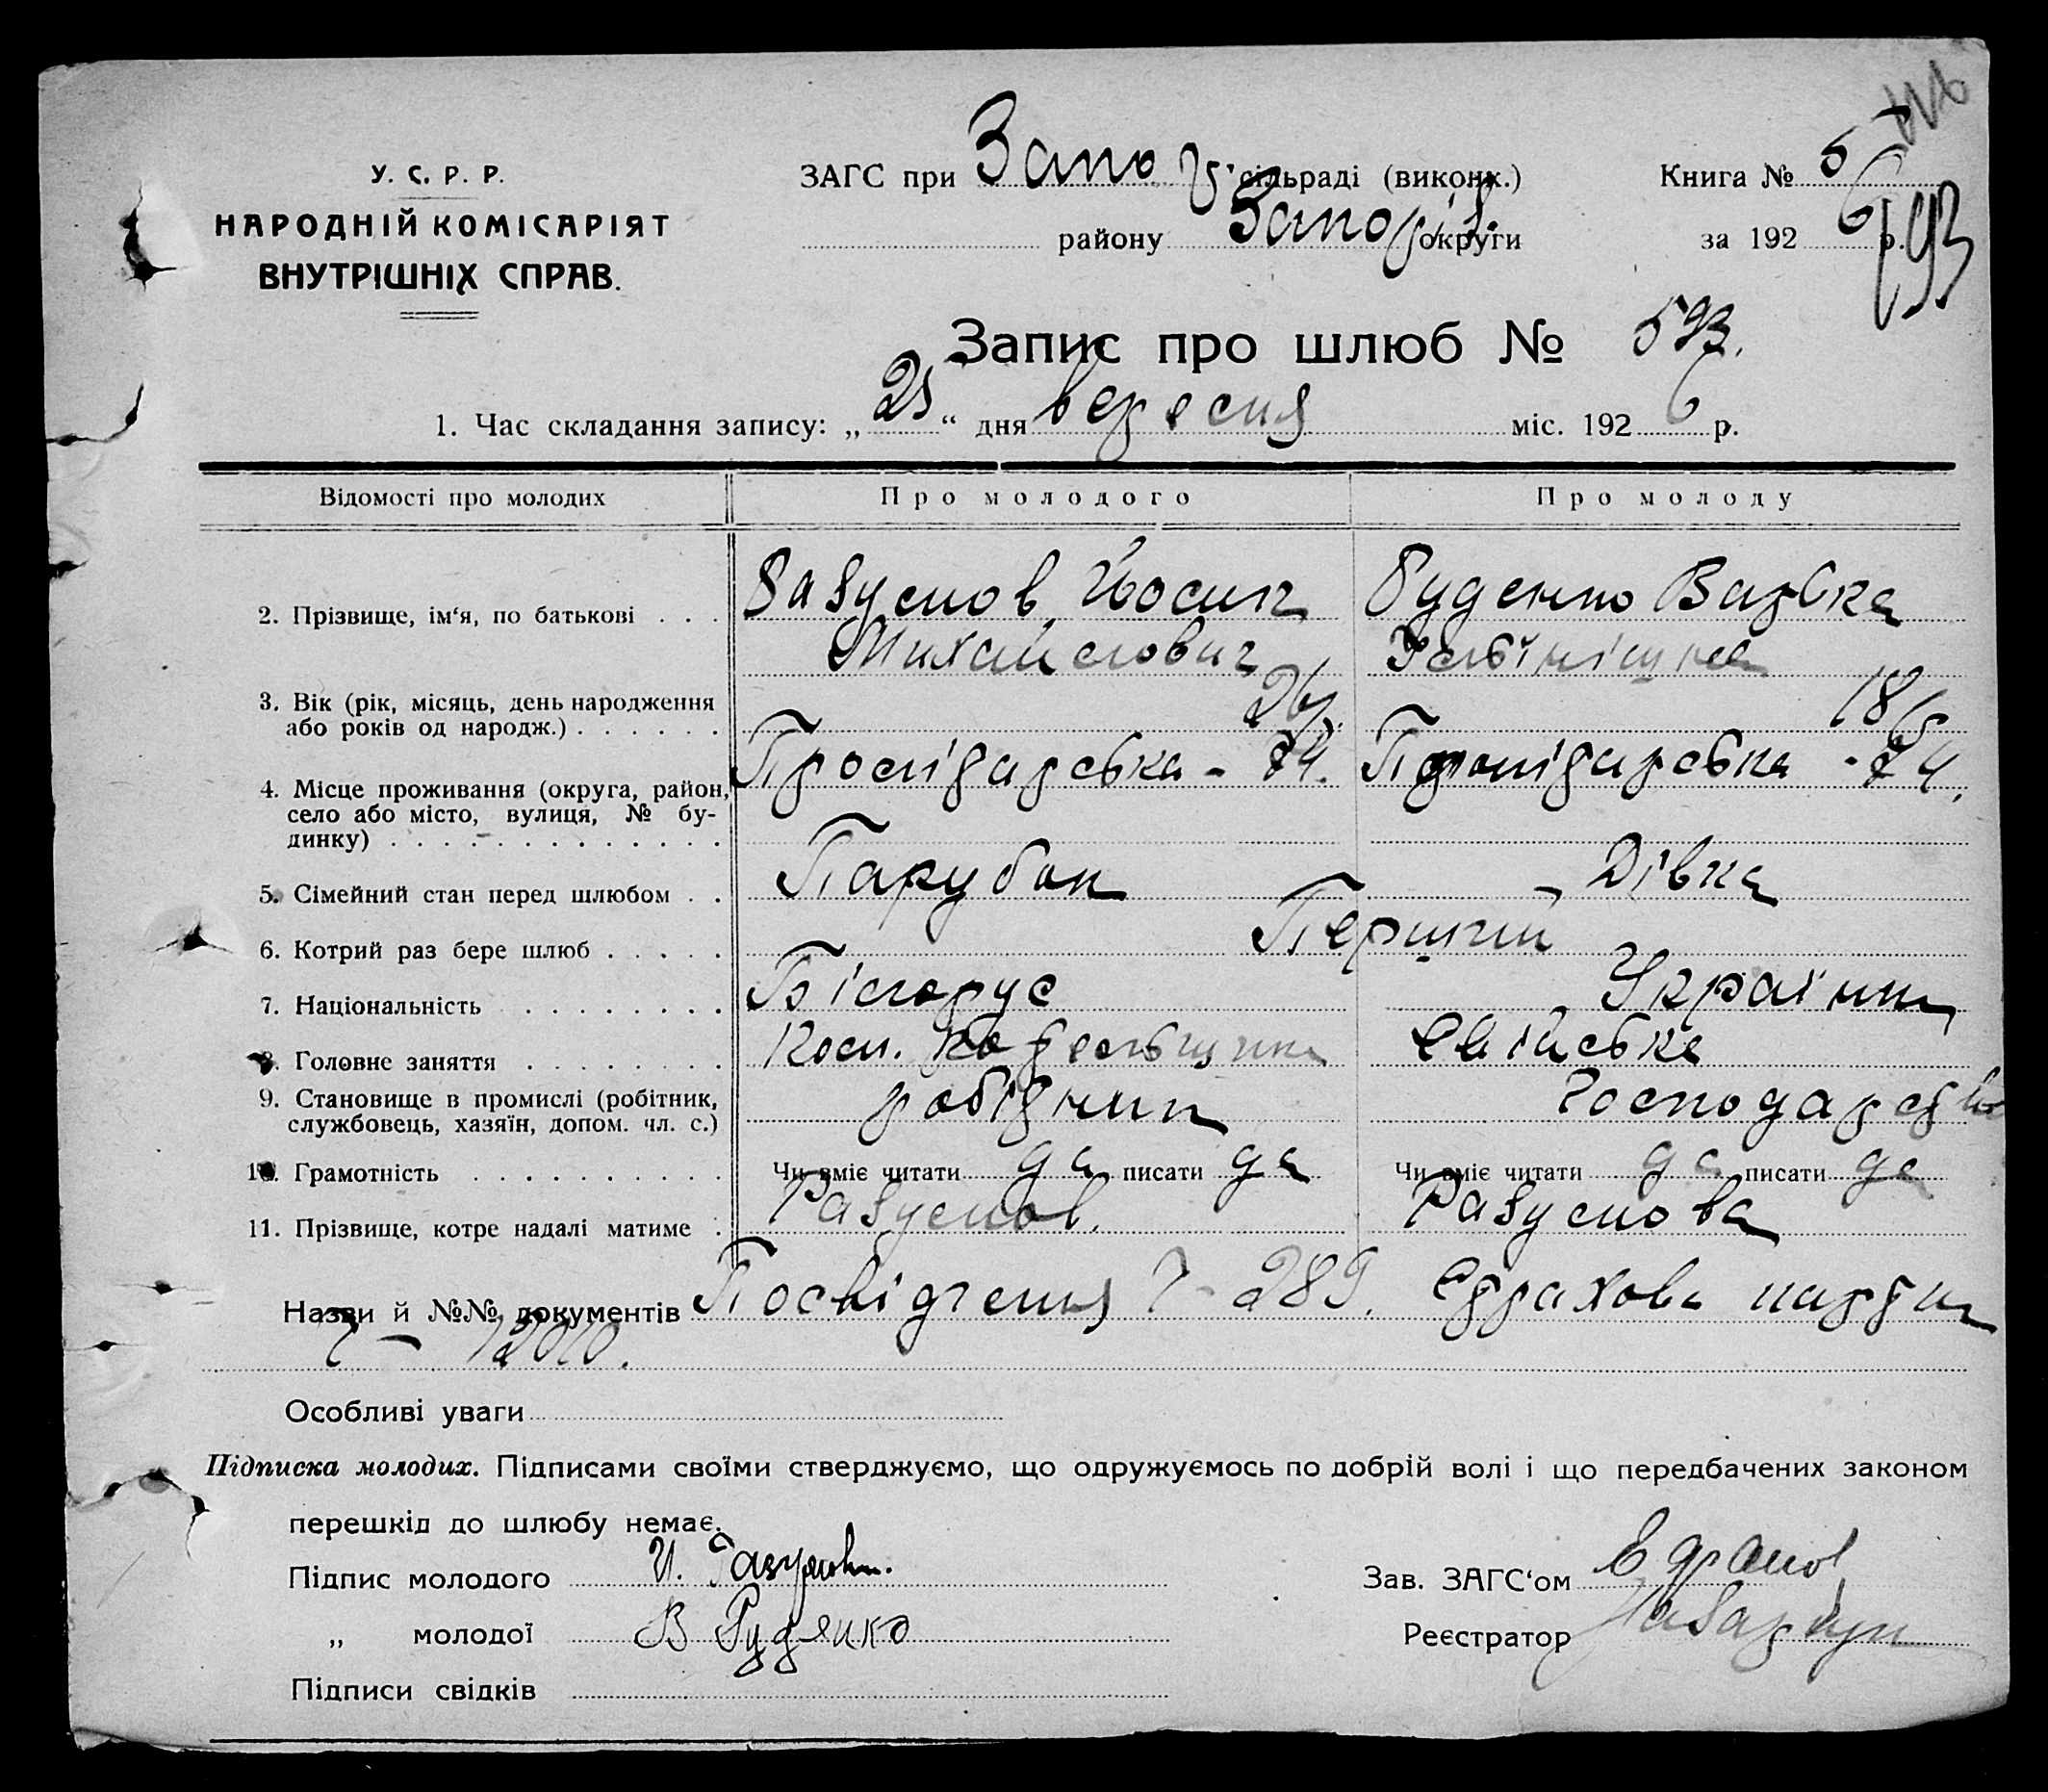 У. С. Р. Р.
НАРОДНІЙ КОМІСАРІЯТ
ВНУТРІШНІХ СПРАВ.
ЗАГС при Запо сільраді (виконк.)
району Запоріз. округи
Книга № 5
за 192 6 р.
593
Запис про шлюб № 593.
1. Час складання запису: „ 25 “ дня вересня міс. 192 6 р.
Відомості про молодих
Про молодого
Про молоду
2. Прізвище, ім‘я, по батькові . . .
Разумов Йосип
Михайлович
Руденко Варвка
3. Вік (рік, місяць, день народження
або років од народж.) . . . . . .
26
18
4. Місце проживання (округа, район,
село або місто, вулиця, № бу-
динку) . . . . . . . . . . . . .
Пролітарська - 74.
Пролітарська - 74.
5. Сімейний стан перед шлюбом . .
Парубок
Дівка
6. Котрий раз бере шлюб . . . . .
Перший
7. Національність . . . . . . . .
Білорус
Українка
8. Головне заняття . . . . . . . .
Котельщик
Хатнє
9. Становище в промислі (робітник,
службовець, хазяїн, допом. чл. с.)
робітник
господарство
10. Грамотність . . . . . . . . . .
Чи вміє читати да писати да
Чи вміє читати да писати да
11. Прізвище, котре надалі матиме .
Разумов.
Разумова
Назви й №№ документів Посвідчення 289. Страхова картка
12010.
Особливі уваги
Підписка молодих. Підписами своїми стверджуємо, що одружуємось по добрій волі і що передбачених законом
перешкід до шлюбу немає.
Підпис молодого И. Разумов.
„ молодої В Руденко
Підписи свідків
Зав. ЗАГС‘ом
Реєстратор